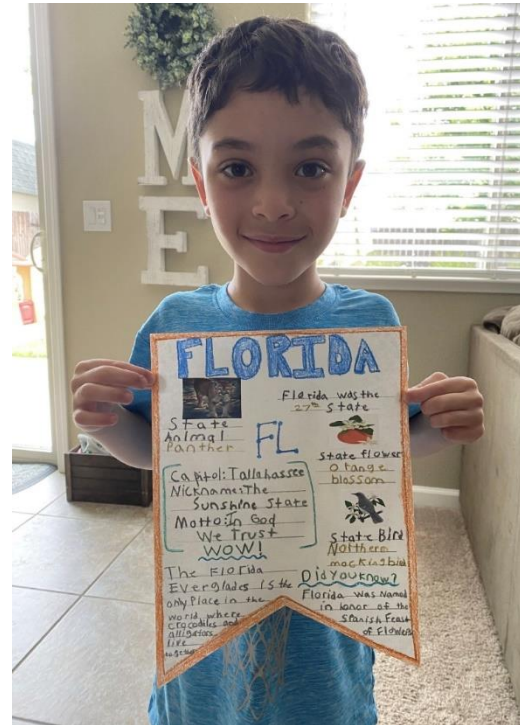 M
E
FLORIDA
State
Animal
Panther
Florida was the
27th State
FL
State flower
Orange
blossom
Capitol: Tallahassee
Nickname: The
Sunshine State
Motto: In God
We Trust
WOW!
State Bird
Northern
mockingbird
The Florida
Everglades is the
only Place in the
world where
crocodiles and
alligators
live
together
Did You Know?
Florida was Named
in honor of the
Spanish Feast
of Flowers